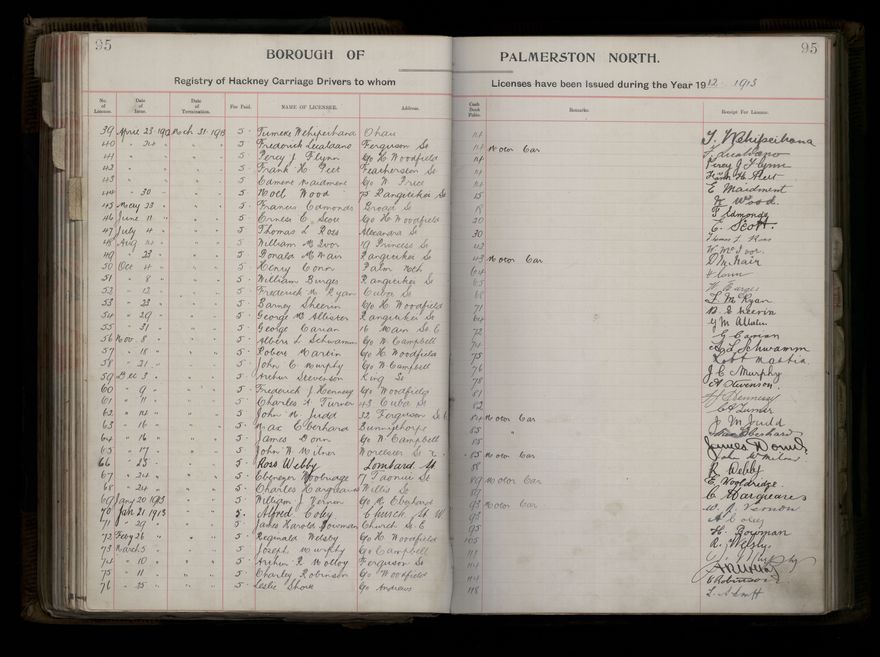 95
BOROUGH OF PALMERSTON NORTH.
95
Registry of Hackney Carriage Drivers to whom Licenses have been Issued during the Year 1912-1913
No. of License. Date of Issue. Date of Termination. Fee Paid. NAME OF LICENSEE. Address. Cash Book Folio. Remarks. Receipt For License.
39 April 23 Mch 31 5 Ohau
40 5 Frederick Ferguson St 114 Motor Car
41 5 Percy J Flynn c/o H Woodfield 114 Percy J Flynn
42 5 Frank H Peet Featherston St Frank H Peet
43 5 Edment Maidment c/o W Price E Maidment
44 30 5 Noel Wood 75 Rangitikei St 15 Wood.
45 May 23 5 Francis Edmonds Broad St 18 F Edmonds
46 June 11 5 Ernest E Scott c/o H Woodfield 20 E. Scott.
47 July 4 5 Thomas L Ross Alexandra St 30 Thomas L Ross
48 Aug 5 William McIvor 19 Princess St 42 W. McIvor.
49 23 5 Donald McNair Rangitikei St 43 Motor Car D McNair
50 Oct 4 5 Henry Conn Palm Nth 64 H Conn
51 8 5 William Burges Rangitikei St 65 W Burges
52 12 5 Frederick M Ryan Cuba St 68 F. M Ryan
53 23 5 Barney Sheerin c/o H Woodfield 71 Sheerin
54 29 5 George McAllister Rangitikei St
55 31 5 George Carian 16 Main St E 72 G Carian
56 Nov 8 5 Albert L Schwamm c/o W Campbell 74 A L Schwamm
57 18 5 Robert Martin c/o H Woodfield 75 Robt Martin
58 21 5 John C Murphy c/o W Campbell 76 J C Murphy
59 Dec 3 5 Arthur Stevenson King St 78 A Stevenson.
60 9 5 Frederick J Hennessy c/o Woodfield 81 Hennessy
61 11 5 Charles A Turner 43 Cuba St 82 C A Turner
62 12 5 John M Judd 32 Ferguson St 84 Motor Car J M Judd
63 16 5 Max Eberhard Bunnythorpe 85 " Max Eberhard
64 16 5 James Donn c/o W Campbell 85 James Donn
65 17 5 John W Milner Worcester St 85 Motor Car John W Milner
66 23 5 Ross Webby Lombard St 88 R Webby
67 24 5 Ebenezer Wooldridge 7 Taonui St 89 Motor Car E Wooldridge.
68 24 5 Charles Hargreaves Willis St 87 C Hargreaves
69 Jany 20 1913 5 William J Vernon c/o M Eberhard 93 Motor Car W. J. Vernon
70 Jan 21 1913 5 Alfred Coley Church St W 93 A Coley
71 29 5 James Harold Bowman Church St E 95 H. Bowman
72 Feby 26 5 Reginald Welsby c/o H Woodfield 105 R. Welsby.
73 March 5 5 Joseph Murphy c/o Campbell 111
74 10 5 Arthur R Molloy Ferguson St 114
75 11 5 Charley Robinson c/o Woodfield 114 C Robinson
76 25 5 Leslie c/o Andrews 118